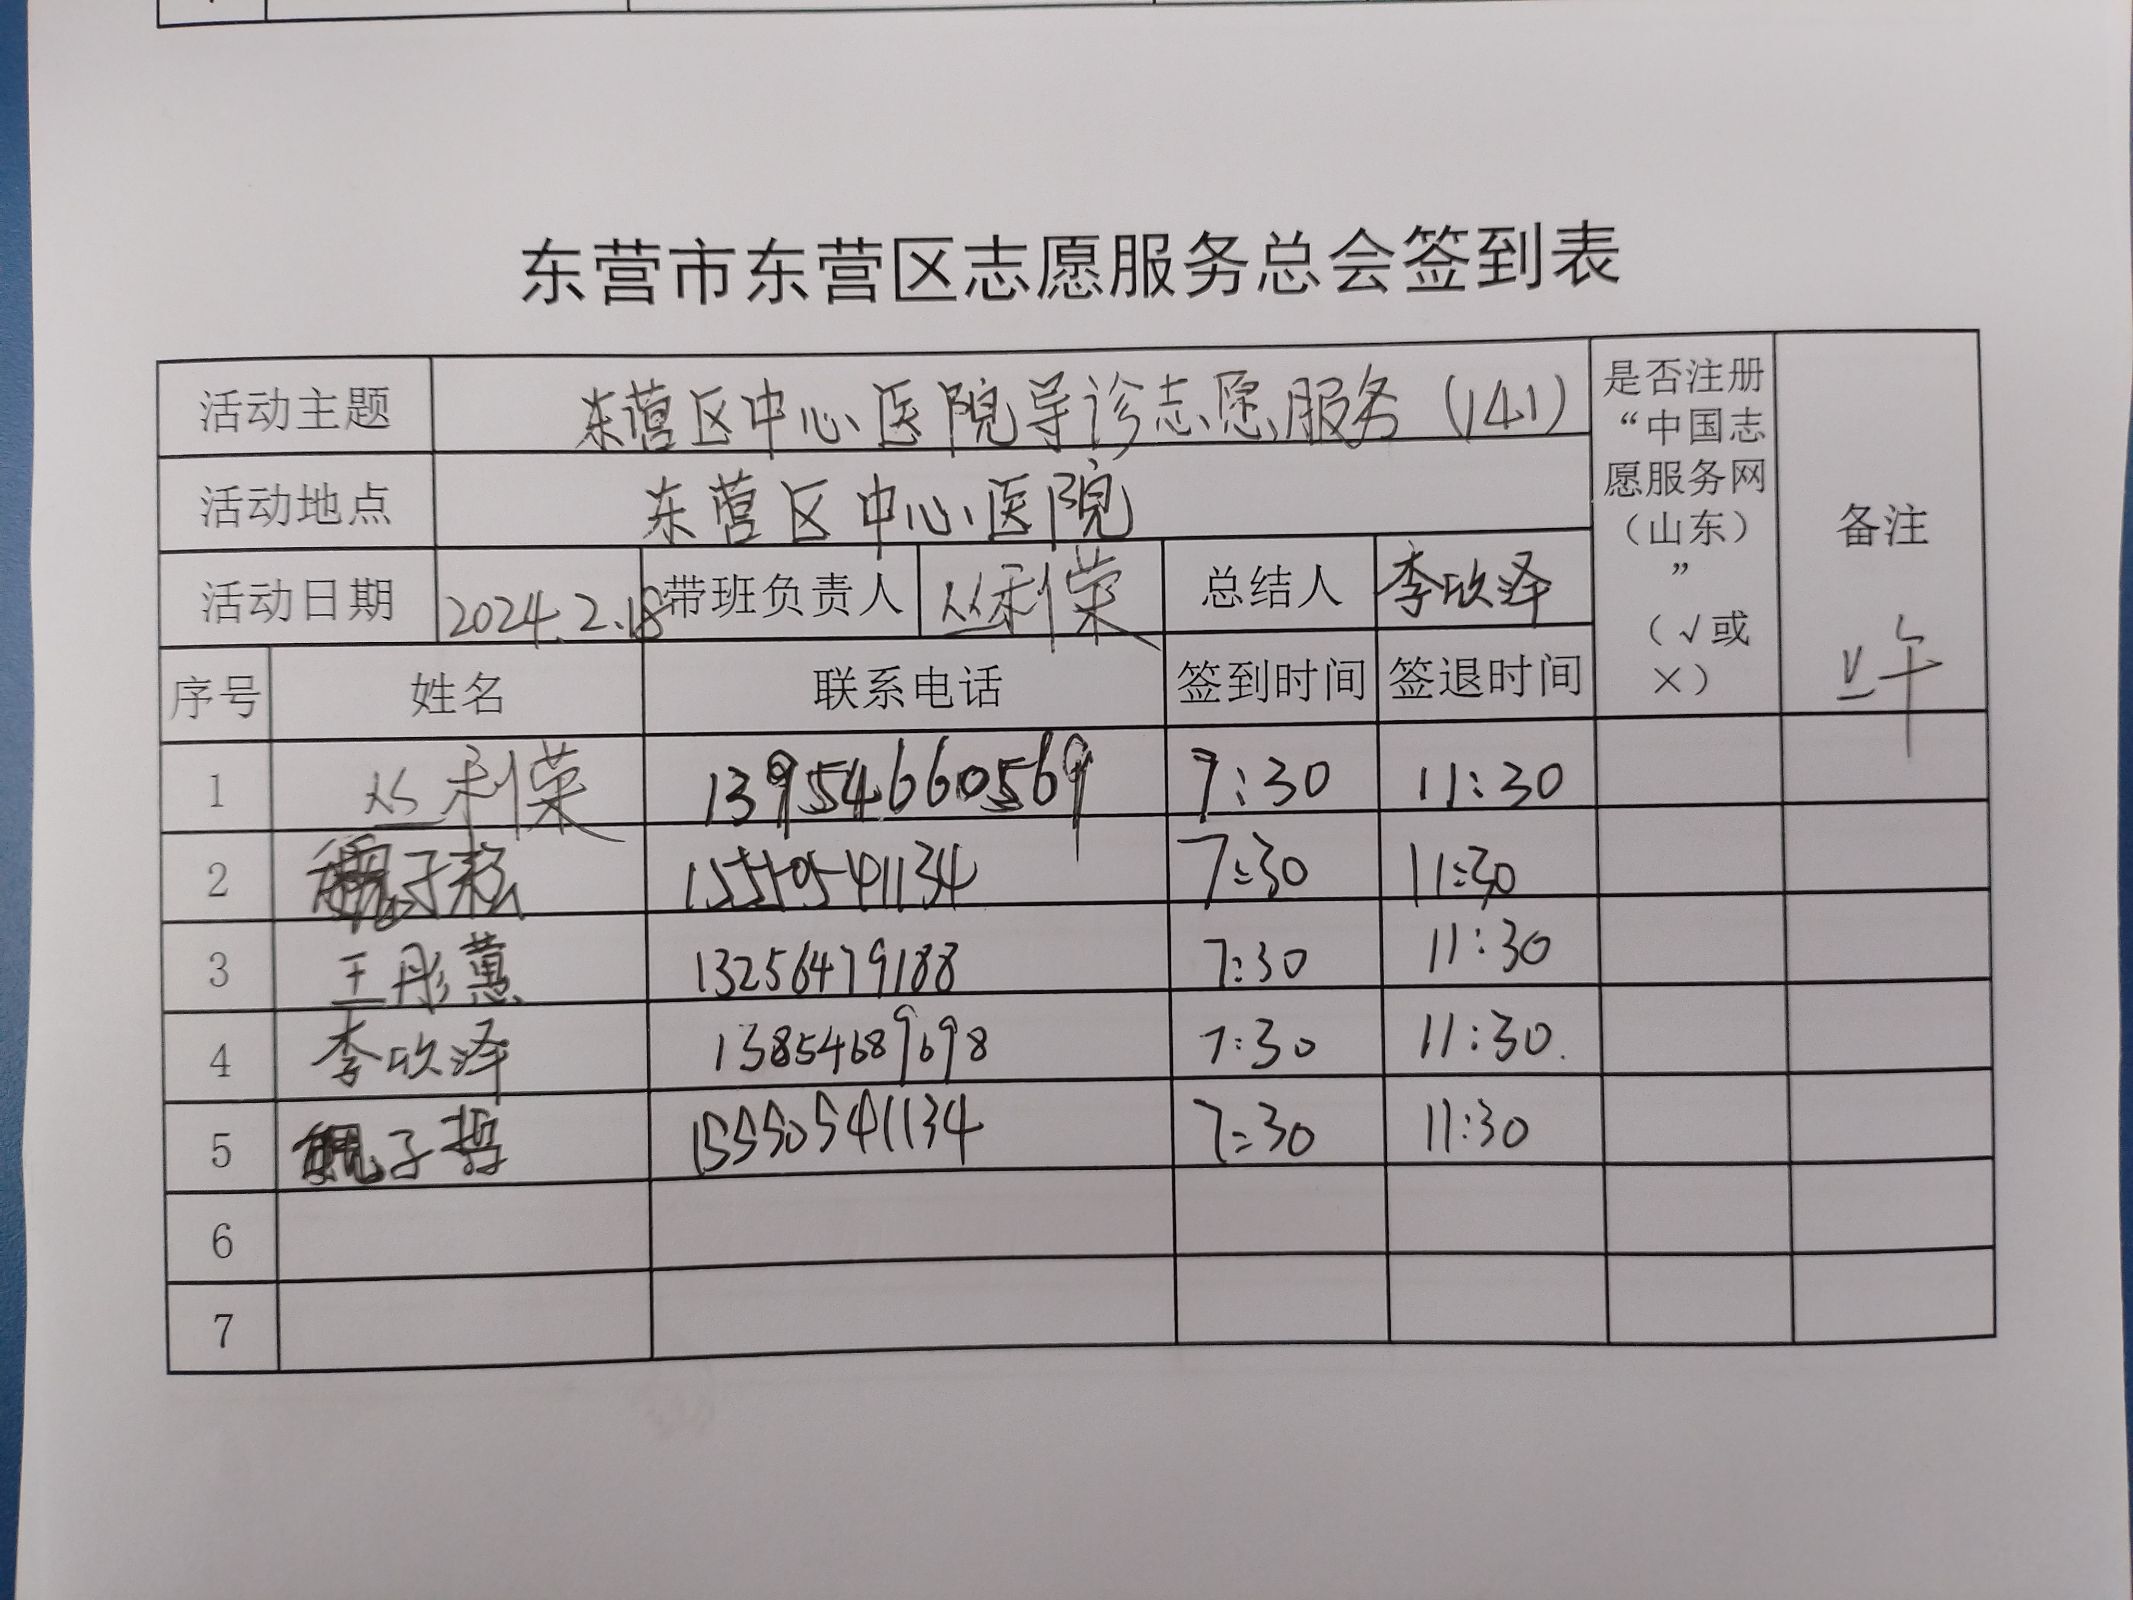 东营市东营区志愿服务总会签到表
活动主题 东营区中心医院导诊志愿服务(141) 是否注册“中国志愿服务网（山东）”（√或×） 备注
活动地点 东营区中心医院
活动日期 2024.2.18 带班负责人 丛利荣 总结人 李欣泽
上午
序号 姓名 联系电话 签到时间 签退时间
1 丛利荣 13954660569 7:30 11:30
2 子 15550541134 7:30 11:30
3 王彤蕙 13256479188 7:30 11:30
4 李欣泽 13854689698 7:30 11:30
5 子哲 15550541134 7:30 11:30
6
7